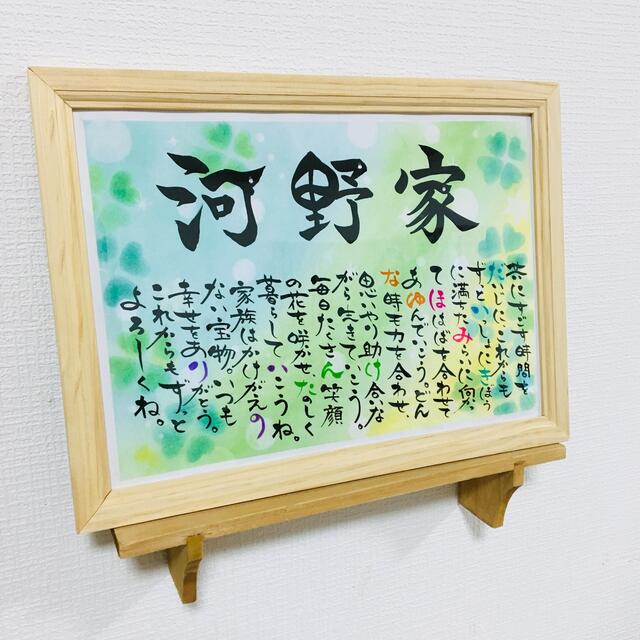 河野家
共にすごす時間を
だいじにこれからも
ずっといっしょにきぼう
に満ちたみらいに向かっ
てほはばを合わせて
あゆんでいこう。どん
な時も力を合わせ、
思いやり助け合いな
がら生きていこう。
毎日たくさん笑顔
の花を咲かせたのしく
暮らしていこうね。
家族はかけがえの
ない宝物。いつも
幸せをありがとう。
これからもずっと
よろしくね。